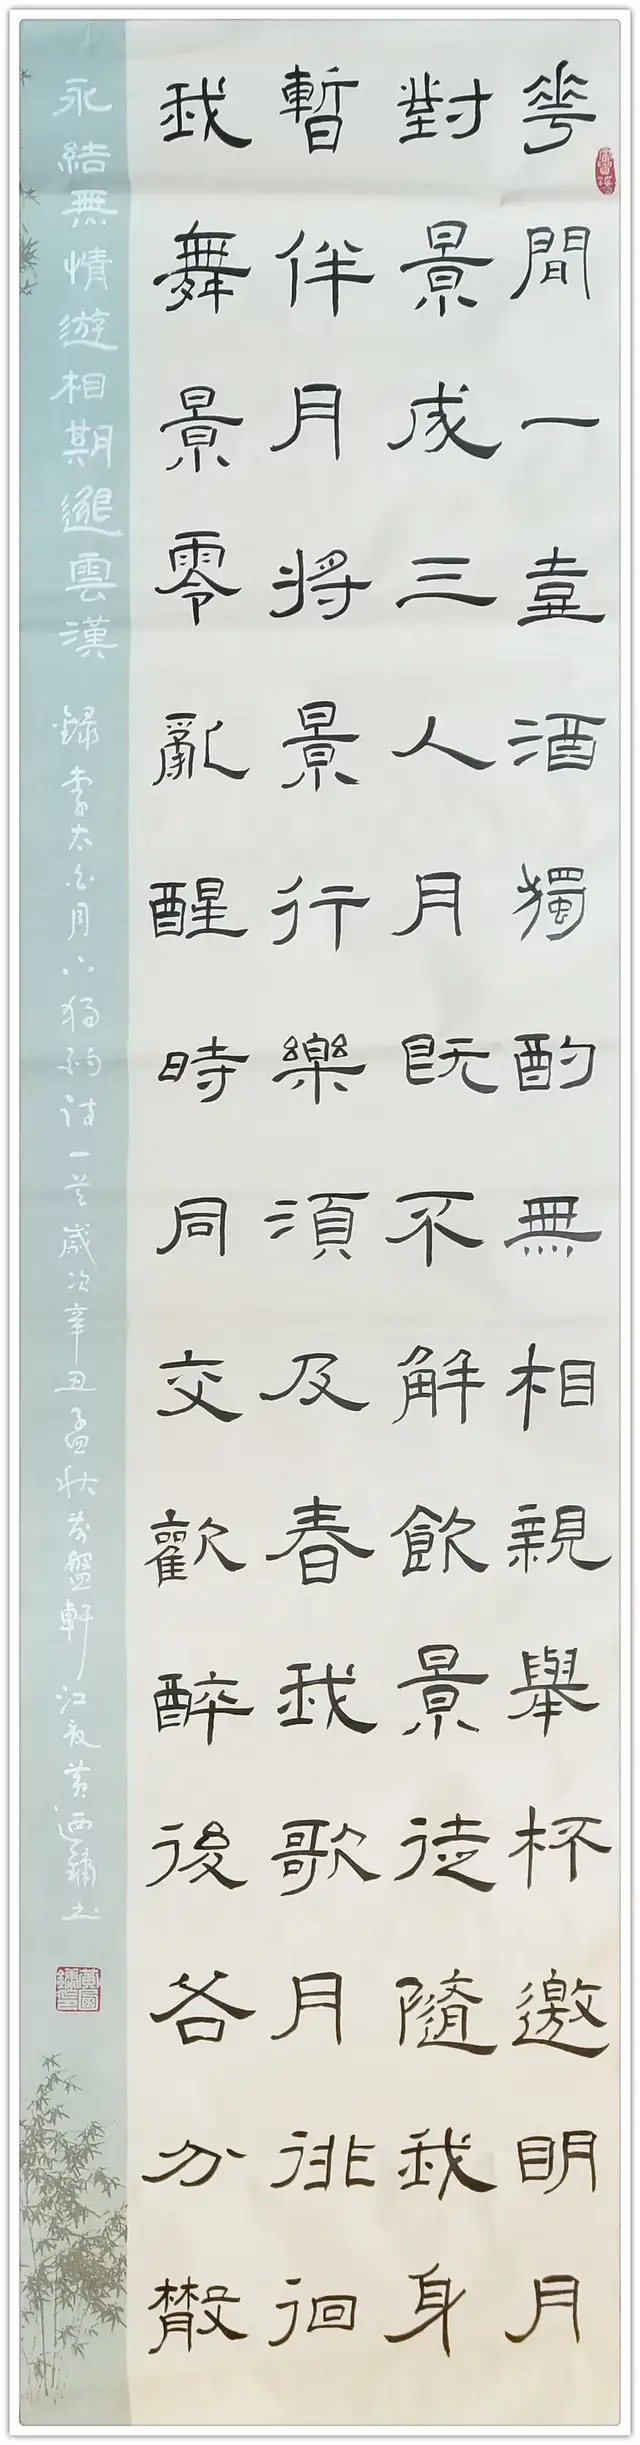 華間一壺酒獨酌無相親舉杯邀明月
對景成三人月既不解飲景徒隨我身
暫伴月將景行樂須及春我歌月徘徊
我舞景零亂醒時同交歡醉後各分散
永結無情遊相期邈雲漢 錄李太白月下獨酌詩一首歲次辛丑孟秋盤軒江夏黃書